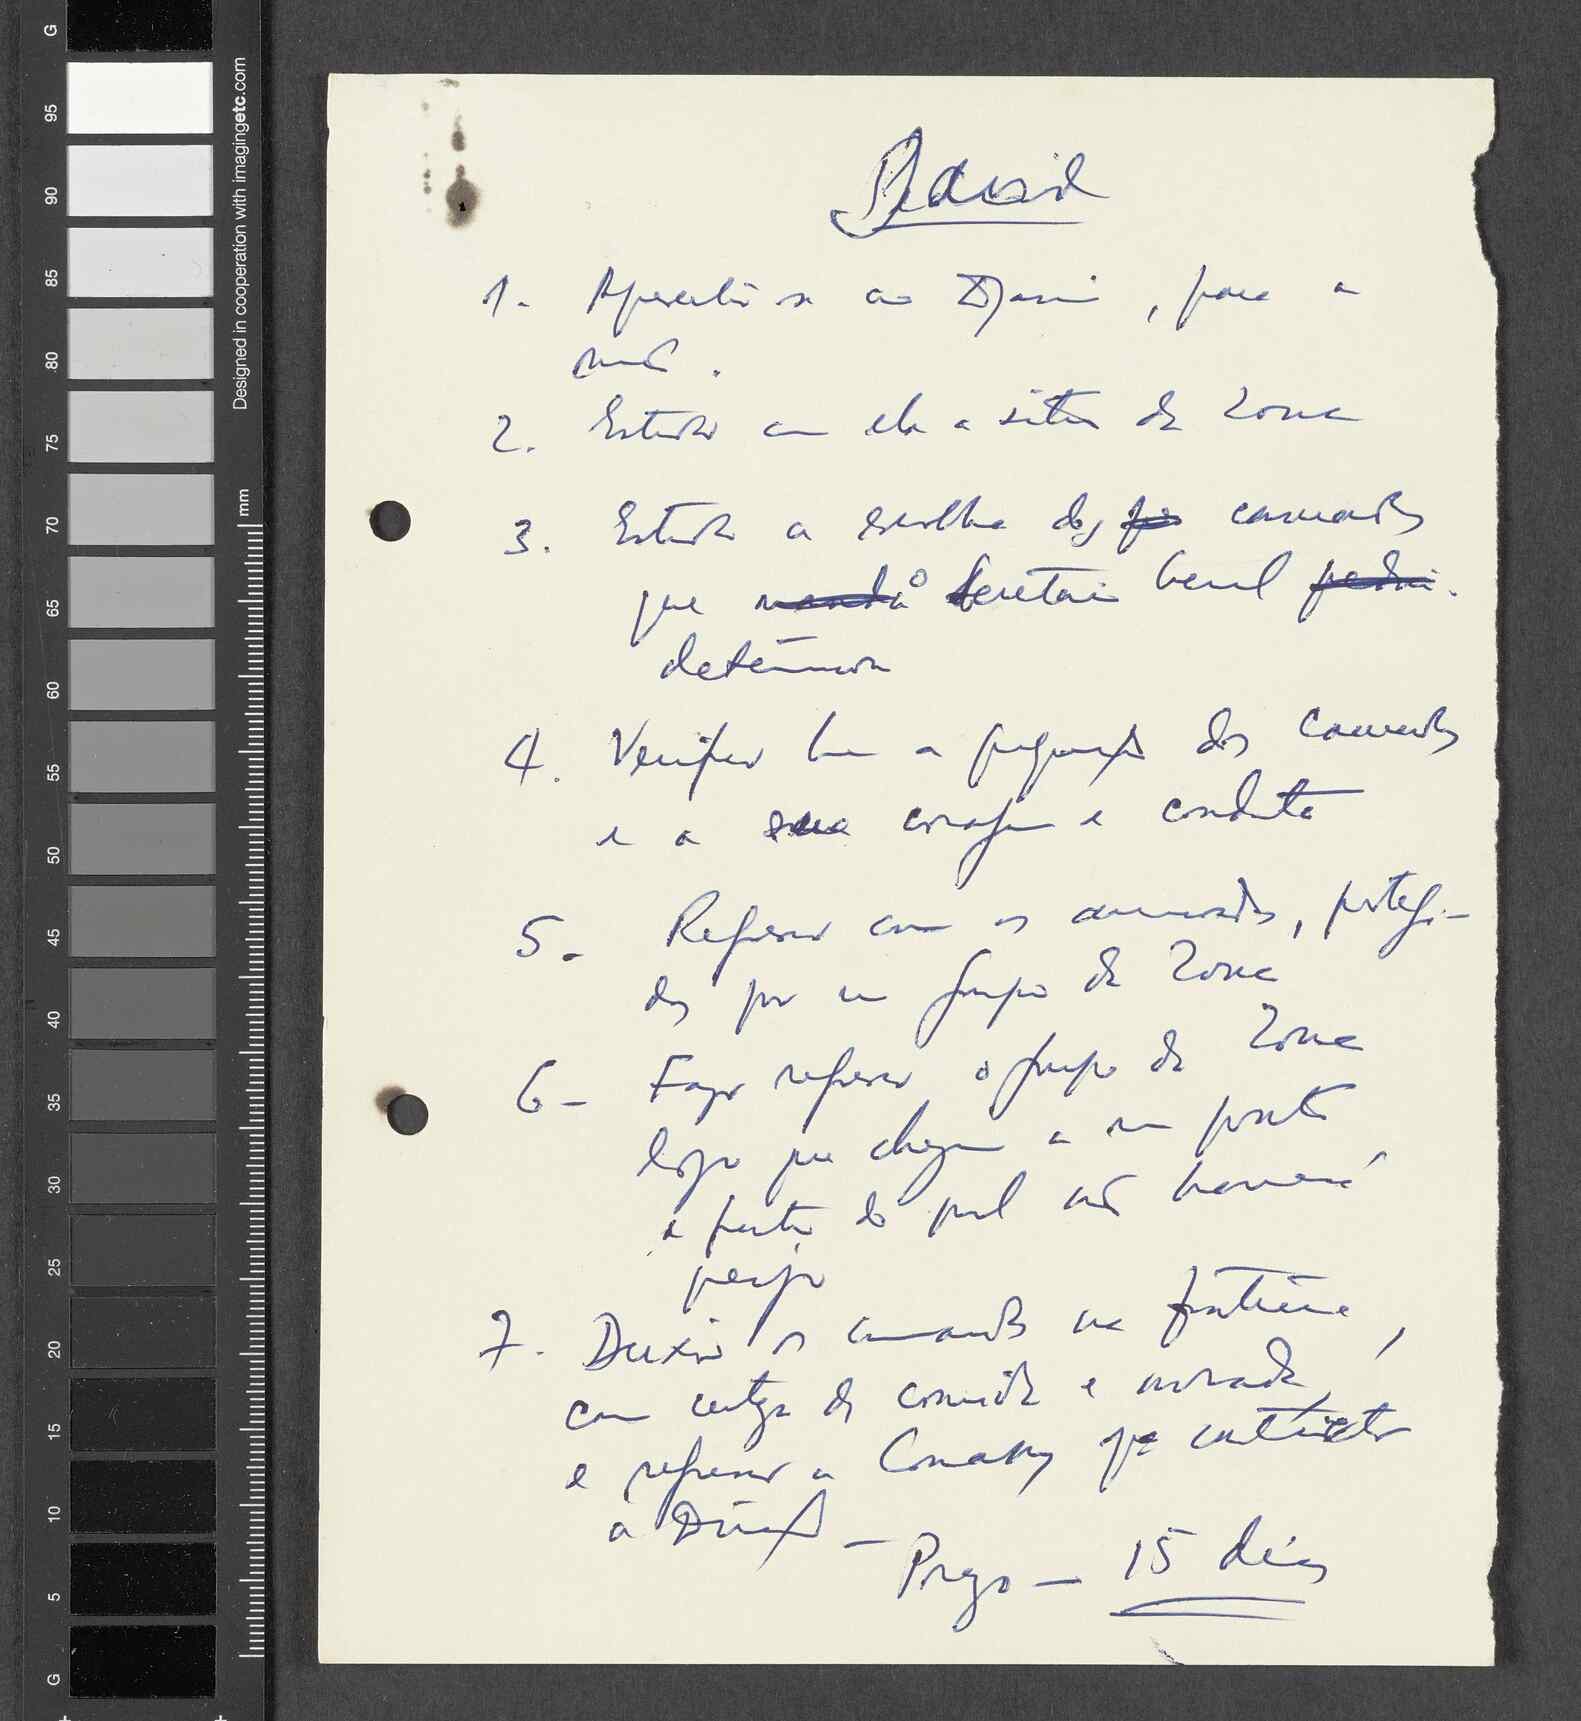 1. Apresentar-se ao Djassi, para a
2. Estudar com ele a situação da Zona
3. Estudar a escolha dos camaradas
que o Secretário Geral
determinou
4. Verificar bem a preparação dos camaradas
e a sua coragem e conduta
5. Regressar com os camaradas, protegi-
dos por um grupo da Zona
6- Fazer regressar o grupo da Zona
logo que chegem a um ponto
a partir do qual não haverá
perigo
7. Deixar os camaradas na fronteira,
com certeza de comida e morada,
e regressar a Conakry
à Direcção -
Prazo - 15 dias
G
95
90
85
80
75
70
65
60
55
50
45
40
35
30
25
20
15
10
5
G
Designed in cooperation with imagingetc.com
mm